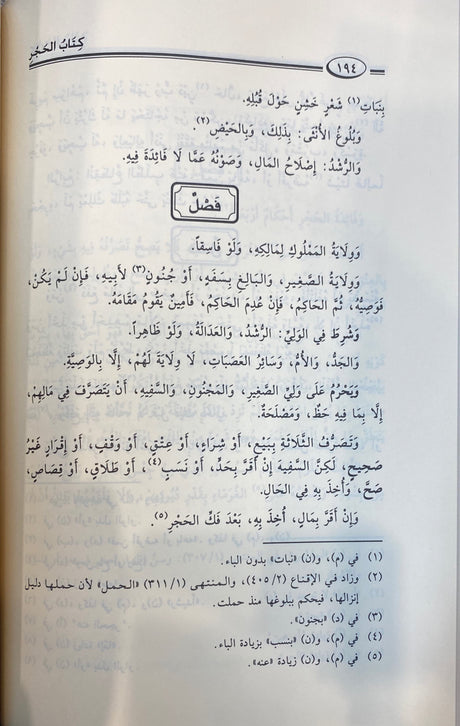 كِتَابُ الحَجْرِ
١٩٤
بِنَبَاتِ(١) شَعْرٍ خَشِنٍ حَوْلَ قُبُلِهِ.
وَبُلُوغُ الأُنْثَى: بِذَلِكَ، وَبِالحَيْضِ(٢).
وَالرُّشْدُ: إِصْلَاحُ المَالِ، وَصَوْنُهُ عَمَّا لَا فَائِدَةَ فِيهِ.
فَصْلٌ
وَوِلَايَةُ المَمْلُوكِ لِمَالِكِهِ، وَلَوْ فَاسِقاً.
وَوِلَايَةُ الصَّغِيرِ، وَالبَالِغِ بِسَفَهٍ، أَوْ جُنُونٍ(٣) لأَبِيهِ، فَإِنْ لَمْ يَكُنْ،
فَوَصِيُّهُ، ثُمَّ الحَاكِمُ، فَإِنْ عُدِمَ الحَاكِمُ، فَأَمِينٌ يَقُومُ مَقَامَهُ.
وَشُرِطَ فِي الوَلِيِّ: الرُّشْدُ، وَالعَدَالَةُ، وَلَوْ ظَاهِراً.
وَالجَدُّ، وَالأُمُّ، وَسَائِرُ العَصَبَاتِ، لَا وِلَايَةَ لَهُمْ، إِلَّا بِالوَصِيَّةِ.
وَيَحْرُمُ عَلَى وَلِيِّ الصَّغِيرِ، وَالمَجْنُونِ، وَالسَّفِيهِ، أَنْ يَتَصَرَّفَ فِي مَالِهِمْ،
إِلَّا بِمَا فِيهِ حَظٌّ، وَمَصْلَحَةٌ.
وَتَصَرُّفُ الثَّلَاثَةِ بِبَيْعٍ، أَوْ شِرَاءٍ، أَوْ عِتْقٍ، أَوْ وَقْفٍ، أَوْ إِقْرَارٍ غَيْرُ
صَحِيحٍ، لَكِنَّ السَّفِيهَ إِنْ أَقَرَّ بِحَدٍّ، أَوْ نَسَبٍ(٤)، أَوْ طَلَاقٍ، أَوْ قِصَاصٍ،
صَحَّ، وَأُخِذَ بِهِ فِي الحَالِ.
وَإِنْ أَقَرَّ بِمَالٍ، أُخِذَ بِهِ، بَعْدَ فَكِّ الحَجْرِ(٥).
(١) في (م)، و(ن) «نبات» بدون الباء.
(٢) وزاد في الإقناع (٤٠٥/٢)، والمنتهى (٣١١/١) «الحمل» لأن حملها دليل
إنزالها، فيحكم ببلوغها منذ حملت.
(٣) في (د) «بجنون».
(٤) في (م)، و(ن) «بنسب» بزيادة الباء.
(٥) في (م)، و(ن) زيادة «عنه».